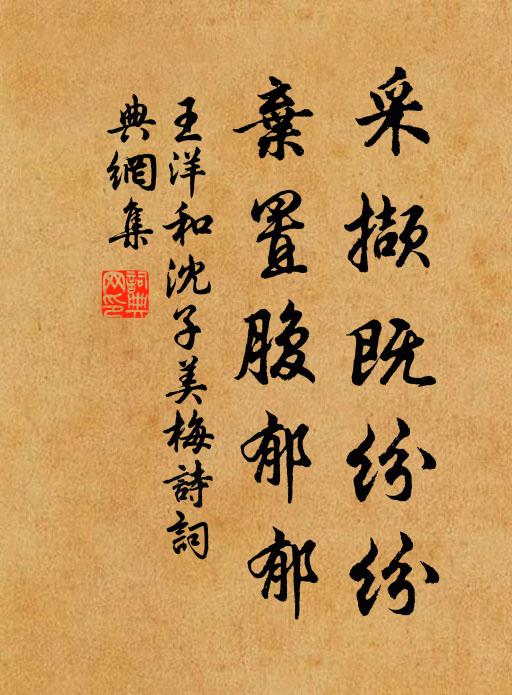 采擷既纷纷
棄置腹郁郁
王洋和沈子美梅詩詞
典網集
詞典
网印